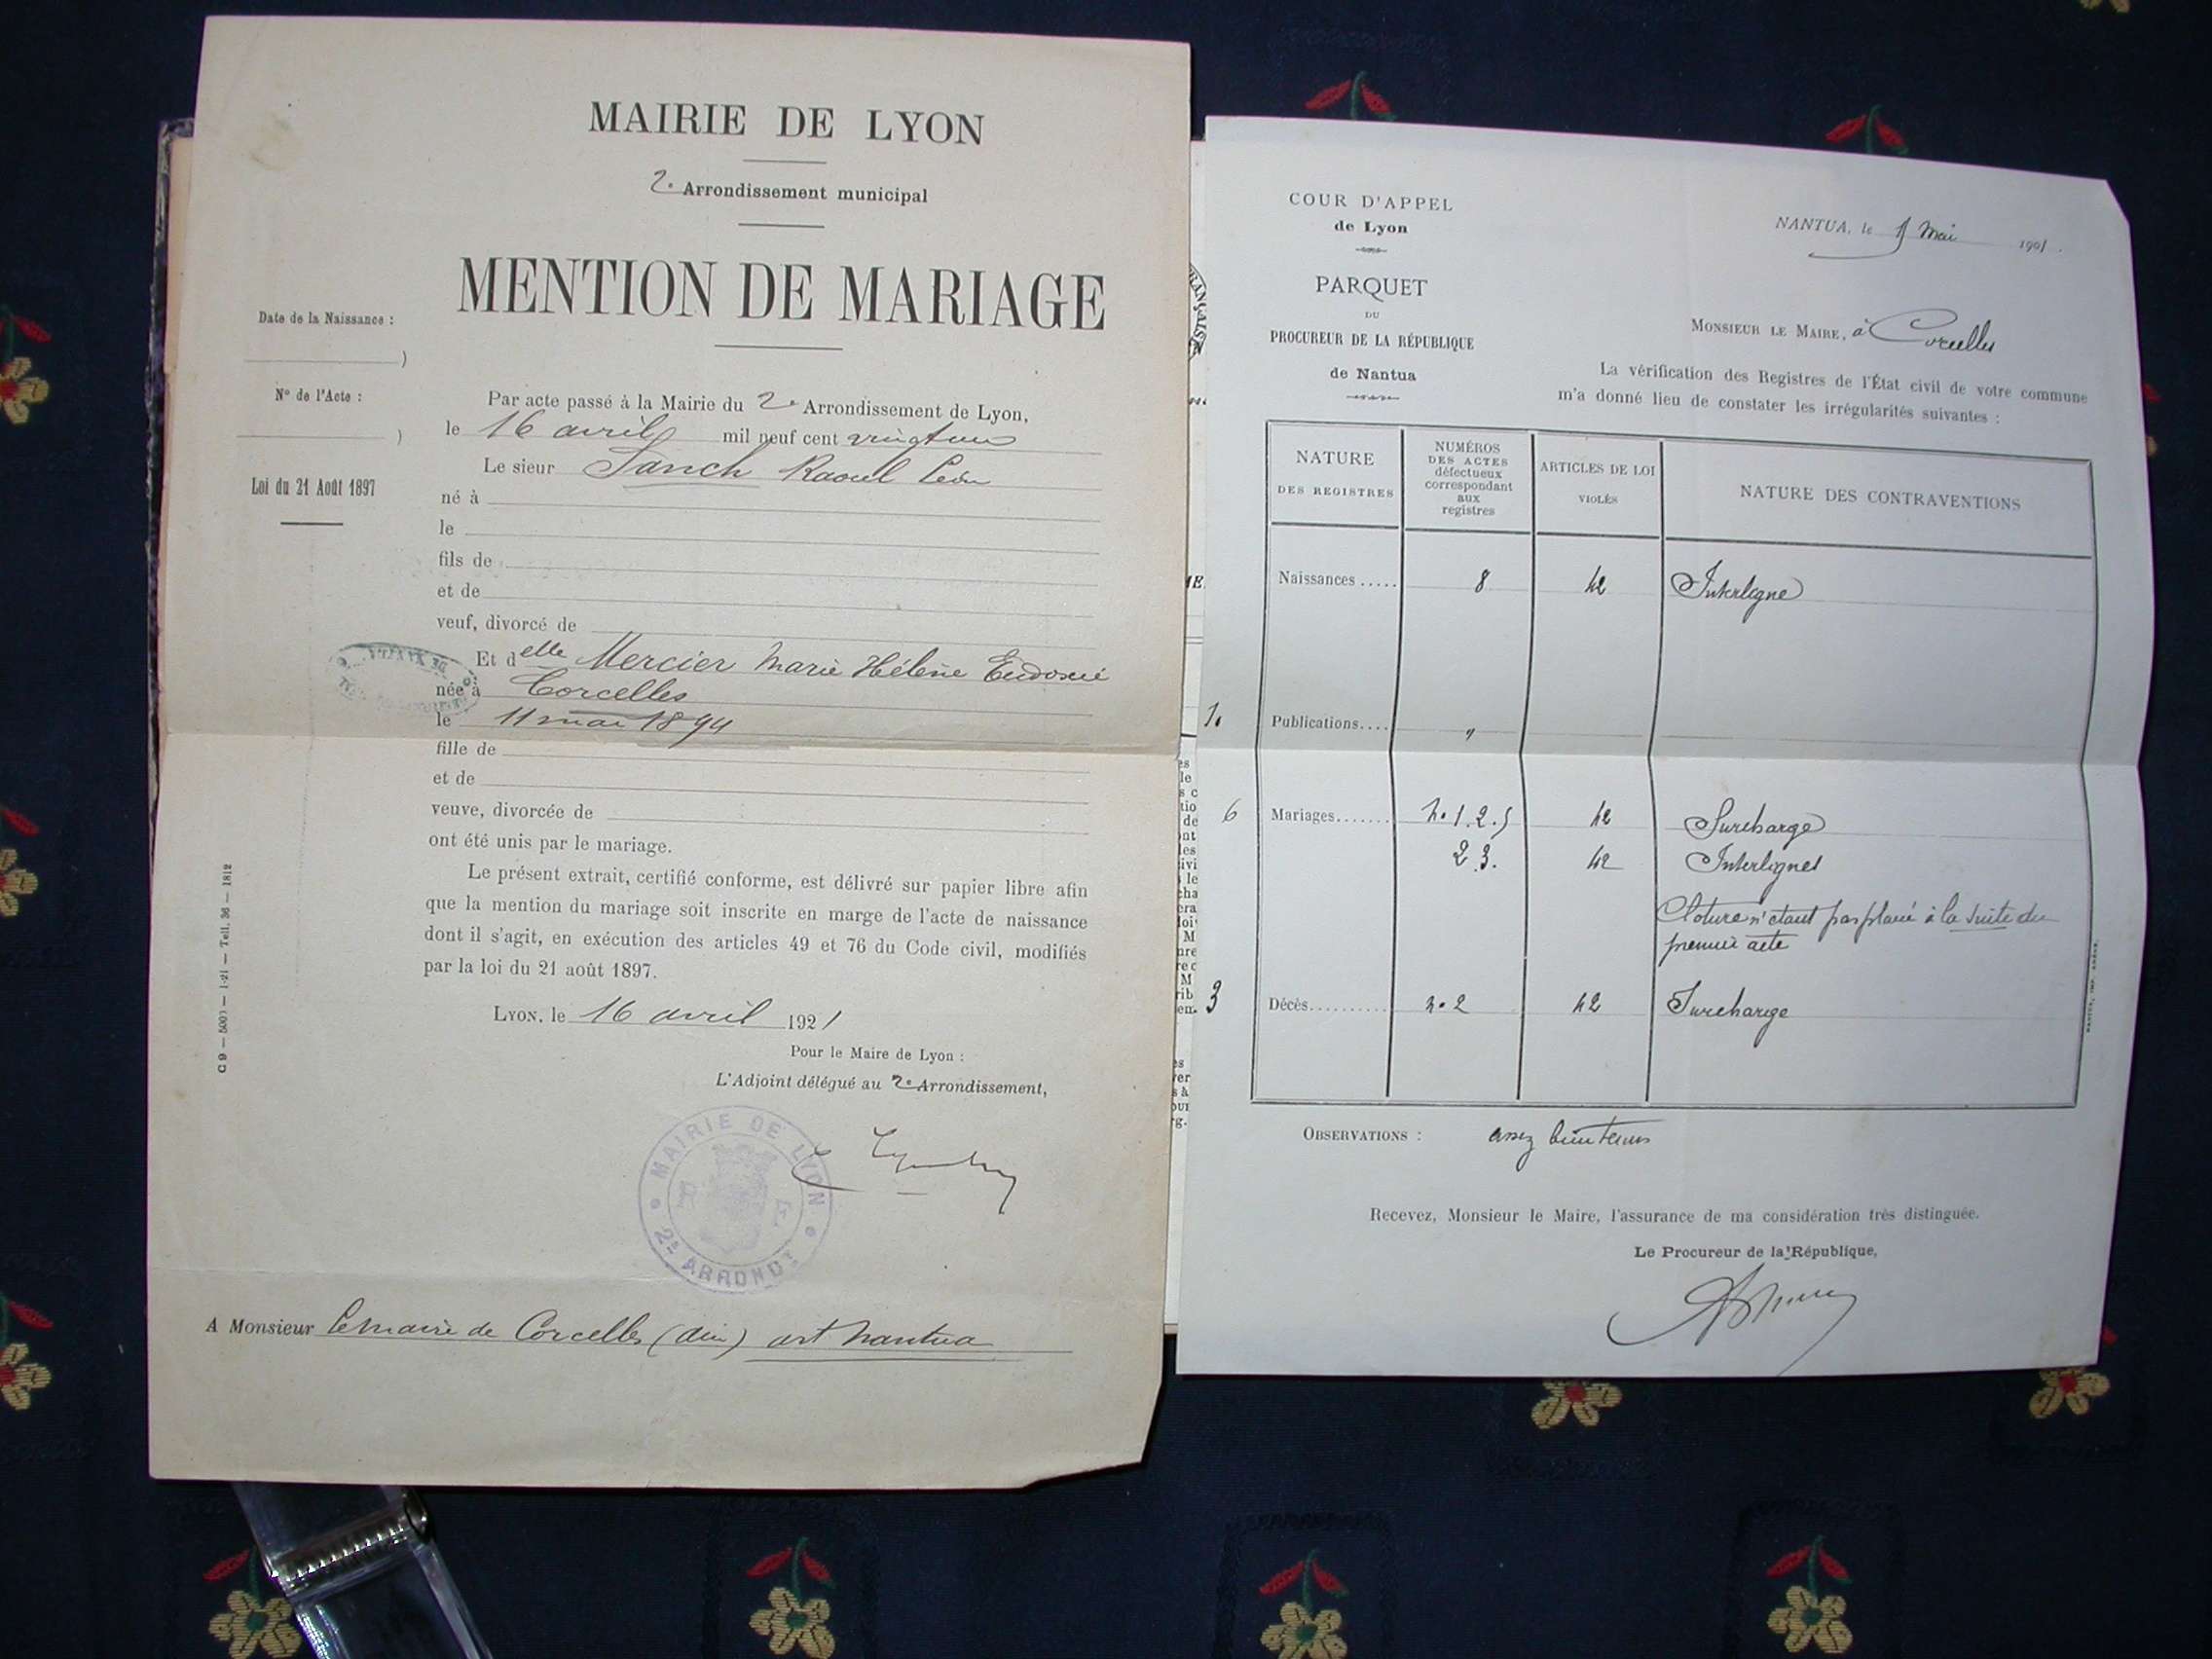 MAIRIE DE LYON
2e Arrondissement municipal
MENTION DE MARIAGE
Date de la Naissance :
)
N° de l'Acte :
)
Loi du 21 Août 1897
Par acte passé à la Mairie du 2e Arrondissement de Lyon,
le 16 avril mil neuf cent vingt un
Le sieur Janch Raoul Léon
né à
le
fils de
et de
veuf, divorcé de
Et delle Mercier Marie Hélène Eudoxie
née à Corcelles
le 11 mai 1894
fille de
et de
veuve, divorcée de
ont été unis par le mariage.
Le présent extrait, certifié conforme, est délivré sur papier libre afin
que la mention du mariage soit inscrite en marge de l'acte de naissance
dont il s'agit, en exécution des articles 49 et 76 du Code civil, modifiés
par la loi du 21 août 1897.
LYON, le 16 avril 1921
Pour le Maire de Lyon :
L'Adjoint délégué au 2e Arrondissement,
MAIRIE DE LYON
R F
2e ARRONDt
A Monsieur le maire de Corcelles (ain) art Nantua
C 9 — 5000 — 1-21 — Tell. 36 — 1812
COUR D'APPEL
de Lyon
PARQUET
DU
PROCUREUR DE LA RÉPUBLIQUE
de Nantua
NANTUA, le Mai 1901.
MONSIEUR LE MAIRE, à Corcelles
La vérification des Registres de l'État civil de votre commune
m'a donné lieu de constater les irrégularités suivantes :
NATURE DES REGISTRES
NUMÉROS DES ACTES défectueux correspondant aux registres
ARTICLES DE LOI VIOLÉS
NATURE DES CONTRAVENTIONS
Naissances ..... 8 42 Interligne
1. Publications.... "
6 Mariages....... n. 1. 2. 5 42 Surcharge
2 3. 42 Interlignes
Cloture n'étant pas placée à la suite du
premier acte
3 Décès.......... n. 2 42 Surcharge
OBSERVATIONS : assez bien tenus
Recevez, Monsieur le Maire, l'assurance de ma considération très distinguée.
Le Procureur de la République,